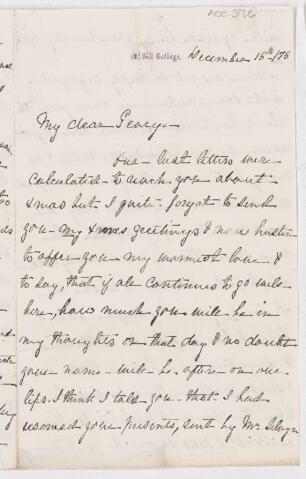 ACC 376
McGill College.
December 15th/75
My dear Georgy-
Our last letters were
calculated to reach you about
Xmas but I quite forgot to send
you my Xmas greetings & now hasten
to offer you my warmest love &
to say, that if all continues to go well
here, how much you will be in
my thoughts on that day & no doubt
your name will be often on our
lips. I think I told you that I had
received your presents, sent by Mr